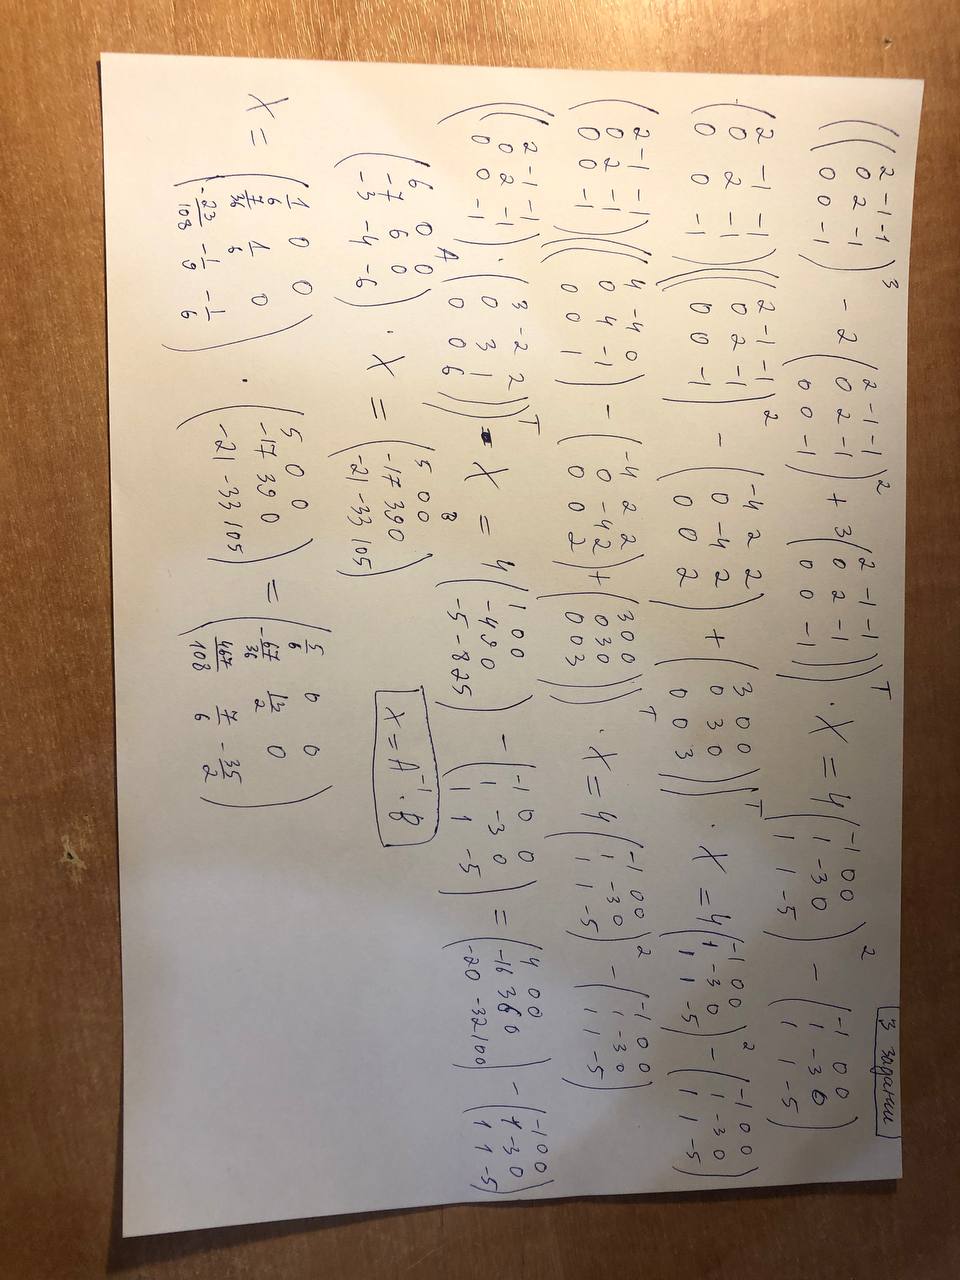 3 задание
((2 -1 -1; 0 2 -1; 0 0 -1)^3 - 2(2 -1 -1; 0 2 -1; 0 0 -1)^2 + 3(2 -1 -1; 0 2 -1; 0 0 -1))^T · X = 4(-1 0 0; 1 -3 0; 1 1 -5)^2 - (-1 0 0; 1 -3 0; 1 1 -5)
(2 -1 -1; 0 2 -1; 0 0 -1)((2 -1 -1; 0 2 -1; 0 0 -1)^2 - (-4 2 2; 0 -4 2; 0 0 2) + (3 0 0; 0 3 0; 0 0 3))^T · X = 4(-1 0 0; 1 -3 0; 1 1 -5)^2 - (-1 0 0; 1 -3 0; 1 1 -5)
(2 -1 -1; 0 2 -1; 0 0 -1)((4 -4 0; 0 4 -1; 0 0 1) - (-4 2 2; 0 -4 2; 0 0 2) + (3 0 0; 0 3 0; 0 0 3))^T · X = 4(-1 0 0; 1 -3 0; 1 1 -5)^2 - (-1 0 0; 1 -3 0; 1 1 -5)
((2 -1 -1; 0 2 -1; 0 0 -1) · (3 -2 2; 0 3 1; 0 0 6))^T · X = 4(1 0 0; -4 9 0; -5 -8 25) - (-1 0 0; 1 -3 0; 1 1 -5) = (4 0 0; -16 36 0; -20 -32 100) - (-1 0 0; 1 -3 0; 1 1 -5)
A B
(6 0 0; -7 6 0; -3 -4 -6) · X = (5 0 0; -17 39 0; -21 -33 105)
X = A^-1 · B
X = (1/6 0 0; 7/36 1/6 0; -23/108 -1/9 -1/6) · (5 0 0; -17 39 0; -21 -33 105) = (5/6 0 0; -67/36 13/2 0; 467/108 7/6 -35/2)